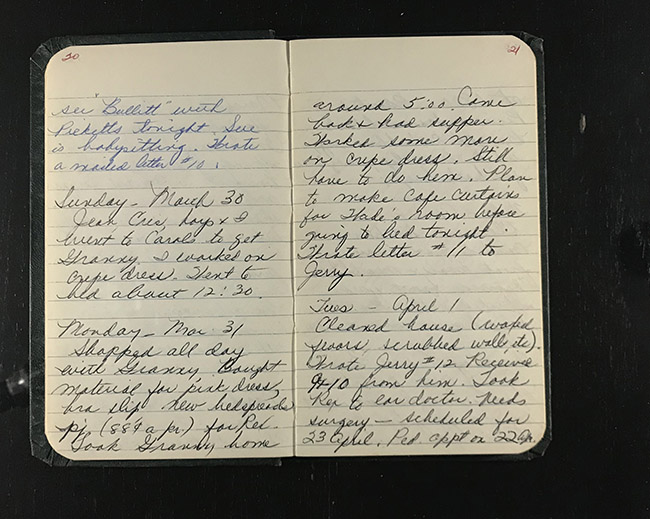 20
see "Bullitt" with
Picketts tonight. Sue
is babysitting. Wrote
a mailed letter #10.
Sunday - March 30
Jean Cres, boys & I
went to Carol's to get
Granny. I worked on
crepe dress. Went to
bed about 12:30.
Monday - Mar 31
Shopped all day
with Granny. Bought
material for pink dress,
bra slip new bedspreads
pj's (88¢ a pr) for Rex
Took Granny home
21
around 5:00. Came
back & had supper.
Worked some more
on crepe dress. Still
have to do hem. Plan
to make cafe curtains
for Wade's room before
going to bed tonight.
Wrote letter #11 to
Jerry.
Tues - April 1
Cleaned house (waxed
floors, scrubbed wall, etc).
Wrote Jerry #12. Received
#10 from him. Took
Rex to ear doctor. Needs
surgery - scheduled for
23 April. Ped appt on 22